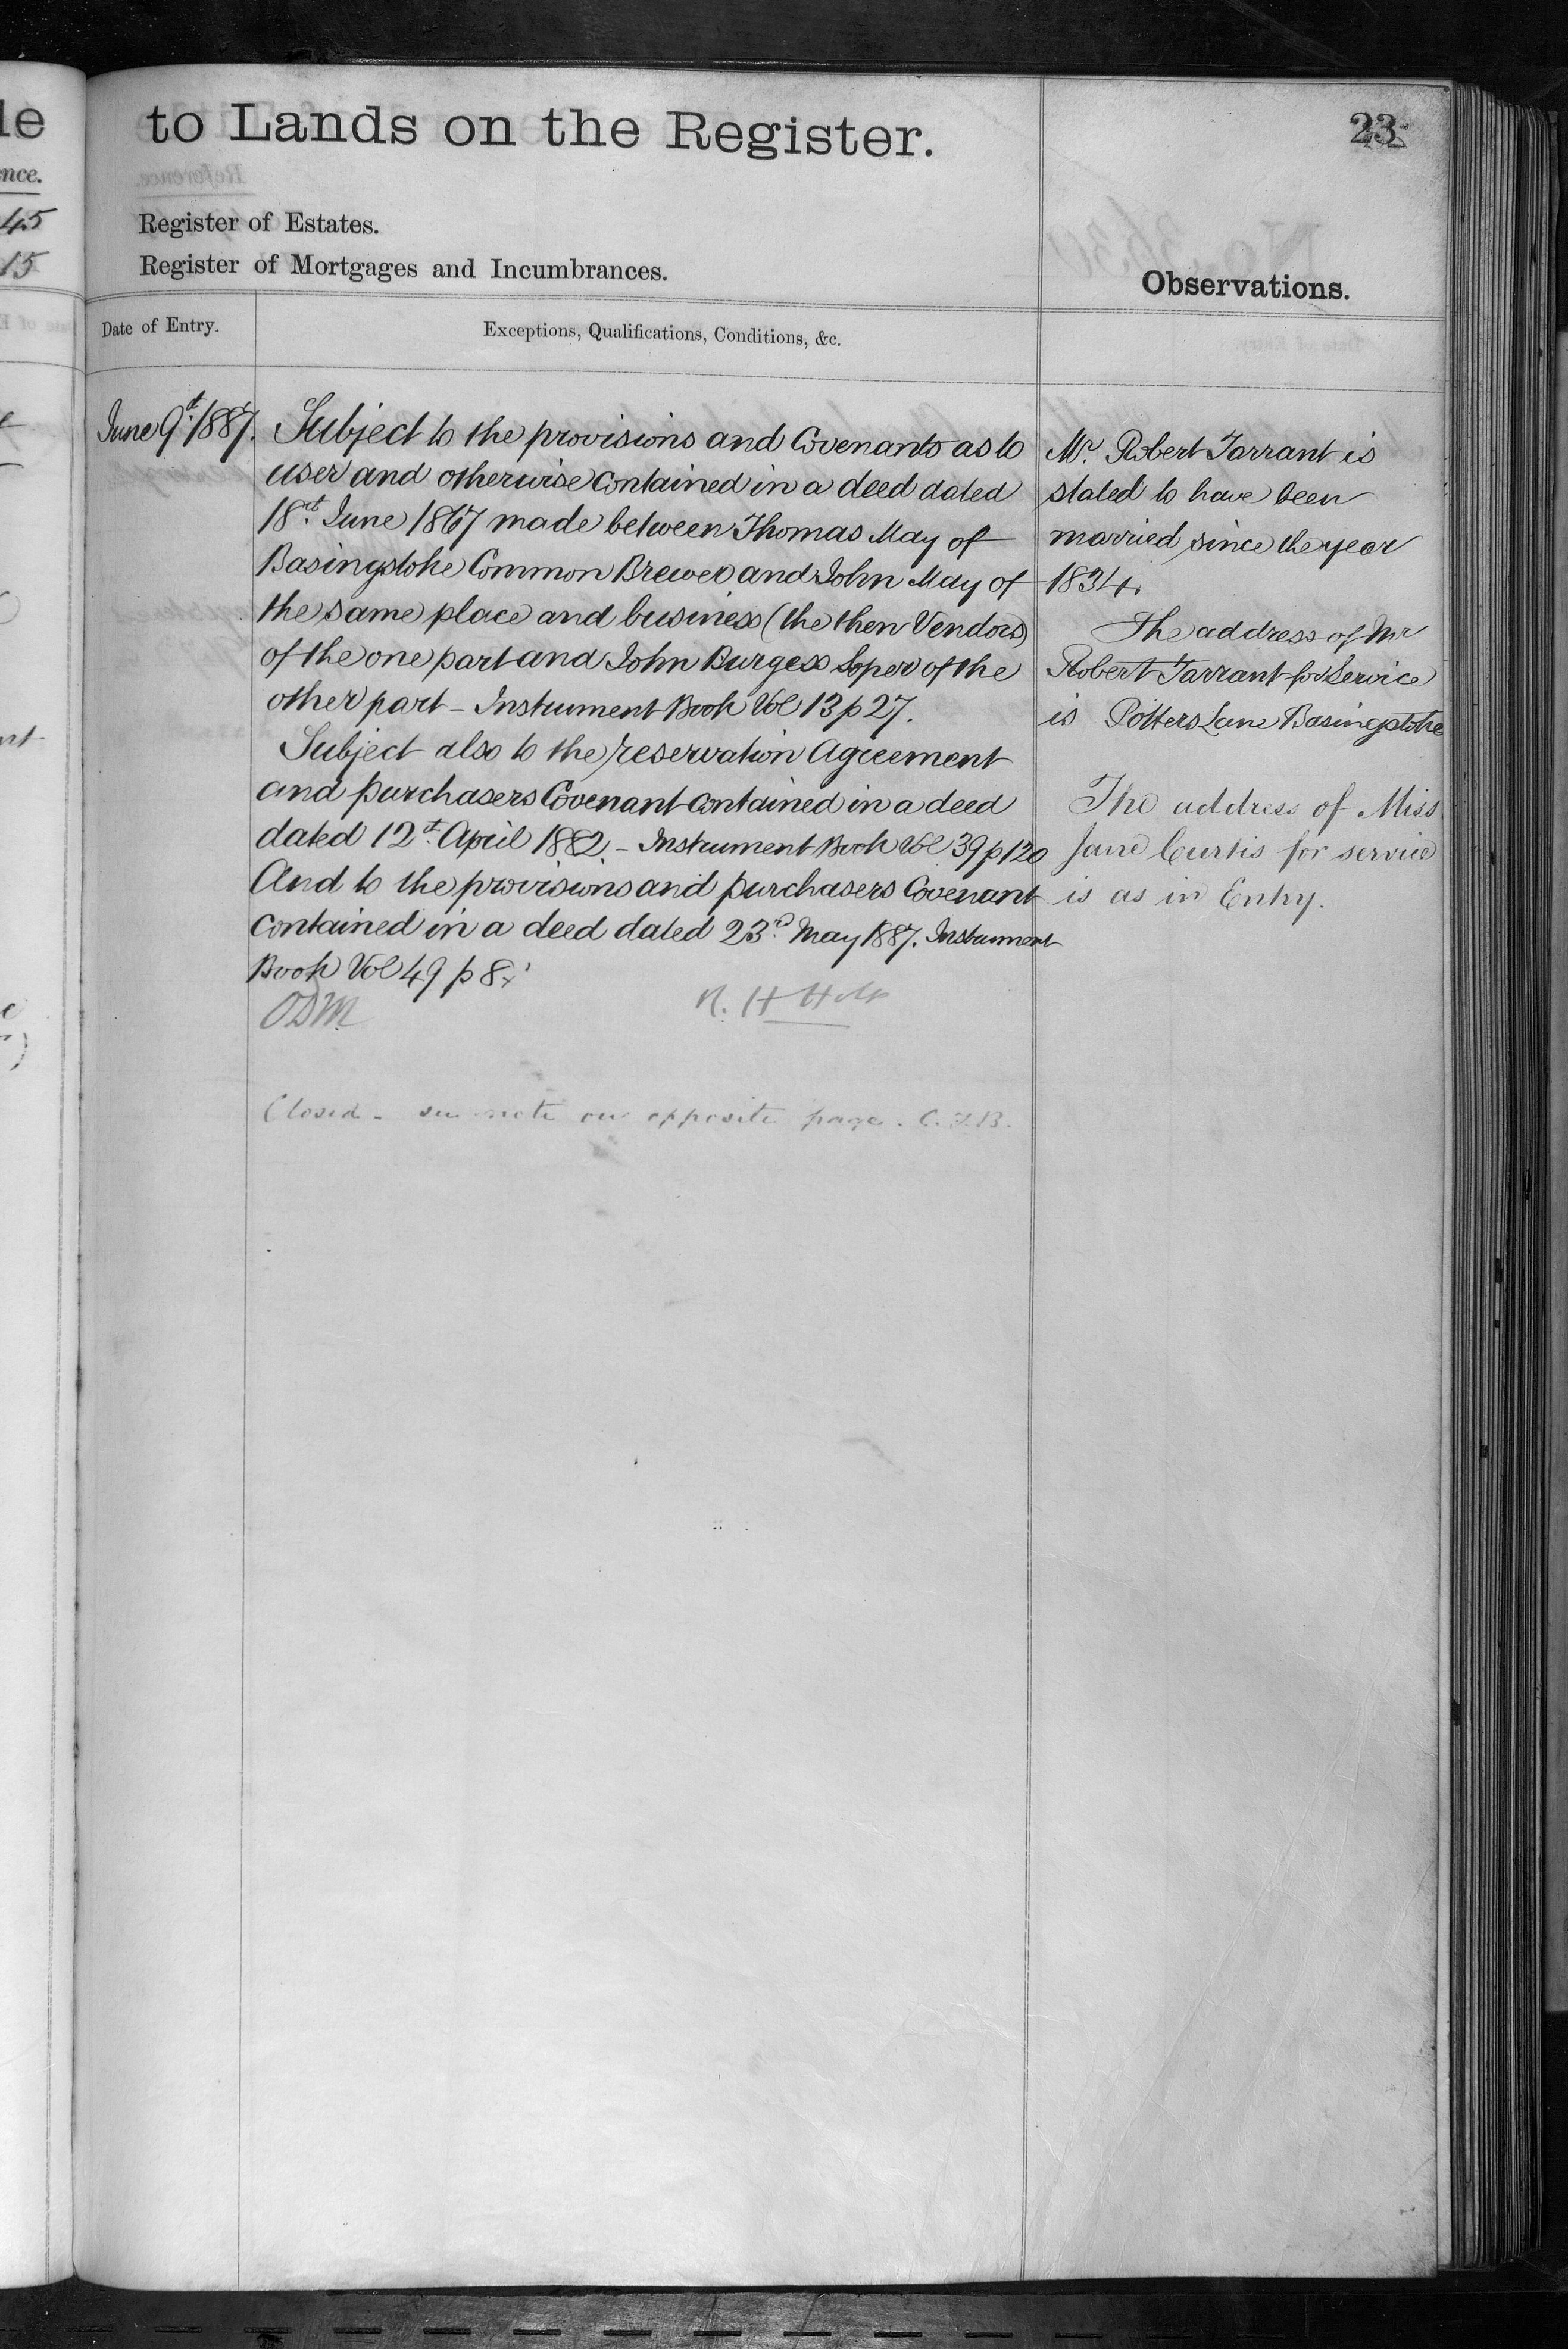 le
nce.
45
15
to Lands on the Register.
23
Register of Estates.
Register of Mortgages and Incumbrances.
Observations.
Date of Entry.
Exceptions, Qualifications, Conditions, &c.
June 9th. 1887.
Subject to the provisions and Covenants as to
user and otherwise contained in a deed dated
18th. June 1867 made between Thomas May of
Basingstoke Common Brewer and John May of
the same place and business (the then Vendors)
of the one part and John Burgess Soper of the
other part - Instrument Book Vol 13 p 27.
Subject also to the reservation Agreement
and purchasers Covenant contained in a deed
dated 12th. April 1882 - Instrument Book Vol 39 p 120
And to the provisions and purchasers Covenant
contained in a deed dated 23rd. May 1887. Instrument
Book Vol 49 p 8.
ODM
R. H Holt
Closed - see note on opposite page. C.F.B.
Mr. Robert Tarrant is
stated to have been
married since the year
1834.
The address of Mr
Robert Tarrant for Service
is Potters Lane Basingstoke
The address of Miss
Jane Curtis for service
is as in Entry.